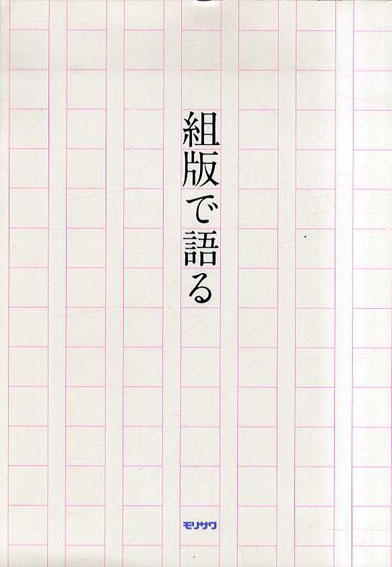 組版で語る
モリサワ